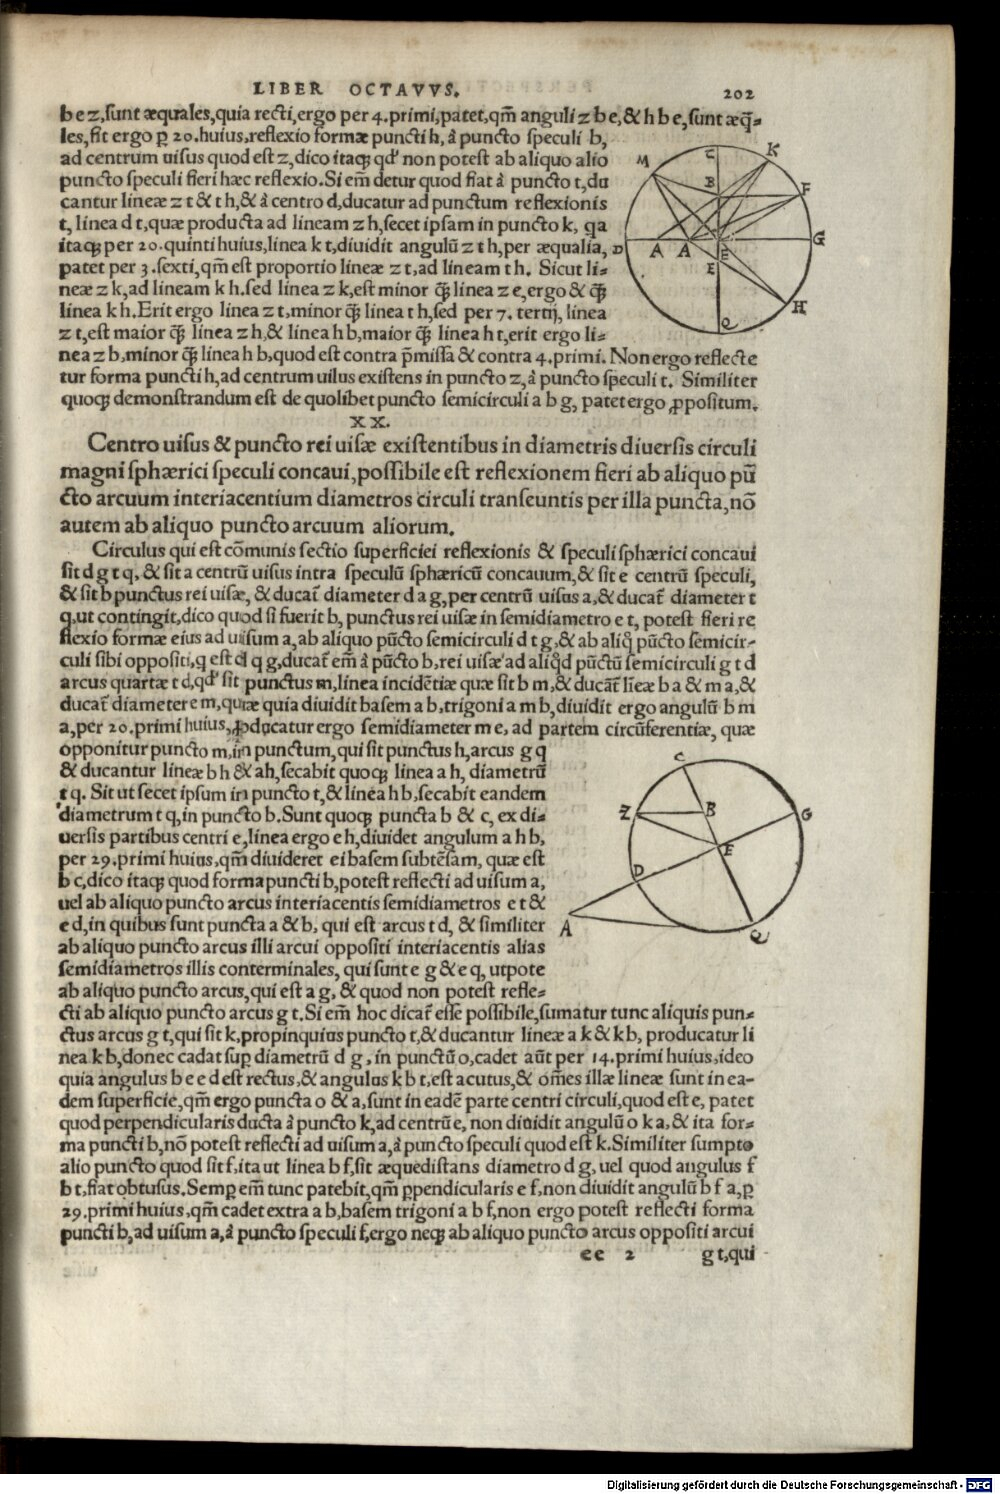 LIBER OCTAVVS. 202
b e z, sunt æquales, quia recti, ergo per 4. primi, patet, qm̄ anguli z b e, & h b e, sunt æq̄-
les, fit ergo ꝑ 20. huius, reflexio formæ puncti h, à puncto speculi b,
ad centrum uisus quod est z, dico itaqꝫ qd' non potest ab aliquo alio
puncto speculi fieri hæc reflexio. Si em̄ detur quod fiat à puncto t, du
cantur lineæ z t & t h, & à centro d, ducatur ad punctum reflexionis
t, linea d t, quæ producta ad lineam z h, secet ipsam in puncto k, qa
itaqꝫ per 20. quinti huius, linea k t, diuidit angulū z t h, per æqualia,
patet per 3. sexti, qm̄ est proportio lineæ z t, ad lineam t h. Sicut li-
neæ z k, ad lineam k h. sed linea z k, est minor q̄ꝫ linea z e, ergo & q̄ꝫ
linea k h. Erit ergo linea z t, minor q̄ꝫ linea t h, sed per 7. tertij, linea
z t, est maior q̄ꝫ linea z h, & linea h b, maior q̄ꝫ linea h t, erit ergo li-
nea z b, minor q̄ꝫ linea h b, quod est contra p̄missā & contra 4. primi. Non ergo reflecte
tur forma puncti h, ad centrum uisus existens in puncto z, à puncto speculi t. Similiter
quoqꝫ demonstrandum est de quolibet puncto semicirculi a b g, patet ergo ꝓpositum.
M C K B F D A A E G E H Q
XX.
Centro uisus & puncto rei uisæ existentibus in diametris diuersis circuli
magni sphærici speculi concaui, possibile est reflexionem fieri ab aliquo pū
cto arcuum interiacentium diametros circuli transeuntis per illa puncta, nō
autem ab aliquo puncto arcuum aliorum.
Circulus qui est cōmunis sectio superficiei reflexionis & speculi sphærici concaui
sit d g t q, & sit a centrū uisus intra speculū sphæricū concauum, & sit e centrū speculi,
& sit b punctus rei uisæ, & ducat̄ diameter d a g, per centrū uisus a, & ducat̄ diameter t
q, ut contingit, dico quod si fuerit b, punctus rei uisæ in semidiametro e t, potest fieri re
flexio formæ eius ad uisum a, ab aliquo pūcto semicirculi d t g, & ab aliq̄ pūcto semicir-
culi sibi oppositi, q est d q g, ducat̄ em̄ à pūcto b, rei uisæ ad aliq̄d pūctū semicirculi g t d
arcus quartæ t d, qd' sit punctus m, linea incidētiæ quæ sit b m, & ducāt̄ lineæ b a & m a, &
ducat̄ diameter e m, quæ quia diuidit basem a b, trigoni a m b, diuidit ergo angulū b m
a, per 20. primi huius, ꝓducatur ergo semidiameter m e, ad partem circūferentiæ, quæ
opponitur puncto m, in punctum, qui sit punctus h, arcus g q
& ducantur lineæ b h & ah, secabit quoqꝫ linea a h, diametrū
t q. Sit ut secet ipsum in puncto t, & linea h b, secabit eandem
diametrum t q, in puncto b. Sunt quoqꝫ puncta b & c, ex di-
uersis partibus centri e, linea ergo e h, diuidet angulum a h b,
per 29. primi huius, qm̄ diuideret ei basem subtēsam, quæ est
b c, dico itaqꝫ quod forma puncti b, potest reflecti ad uisum a,
uel ab aliquo puncto arcus interiacentis semidiametros e t &
e d, in quibus sunt puncta a & b, qui est arcus t d, & similiter
ab aliquo puncto arcus illi arcui oppositi interiacentis alias
semidiametros illis conterminales, qui sunt e g & e q, utpote
ab aliquo puncto arcus, qui est a g, & quod non potest refle-
C Z B G E D A Q
cti ab aliquo puncto arcus g t. Si em̄ hoc dicat̄ esse possibile, sumatur tunc aliquis pun-
ctus arcus g t, qui sit k, propinquius puncto t, & ducantur lineæ a k & k b, producatur li
nea k b, donec cadat suꝑ diametrū d g, in punctū o, cadet aūt per 14. primi huius, ideo
quia angulus b e e d est rectus, & angulus k b t, est acutus, & om̄es illæ lineæ sunt in ea-
dem superficie, qm̄ ergo puncta o & a, sunt in eadē parte centri circuli, quod est e, patet
quod perpendicularis ducta à puncto k, ad centrū e, non diuidit angulū o k a, & ita for-
ma puncti b, nō potest reflecti ad uisum a, à puncto speculi quod est k. Similiter sumpto
alio puncto quod sit f, ita ut linea b f, sit æquedistans diametro d g, uel quod angulus f
b t, fiat obtusus. Semꝑ em̄ tunc patebit, qm̄ ꝑpendicularis e f, non diuidit angulū b f a, ꝑ
29. primi huius, qm̄ cadet extra a b, basem trigoni a b f, non ergo potest reflecti forma
puncti b, ad uisum a, à puncto speculi f, ergo neqꝫ ab aliquo puncto arcus oppositi arcui
ee 2 g t, qui
Digitalisierung gefördert durch die Deutsche Forschungsgemeinschaft - DFG